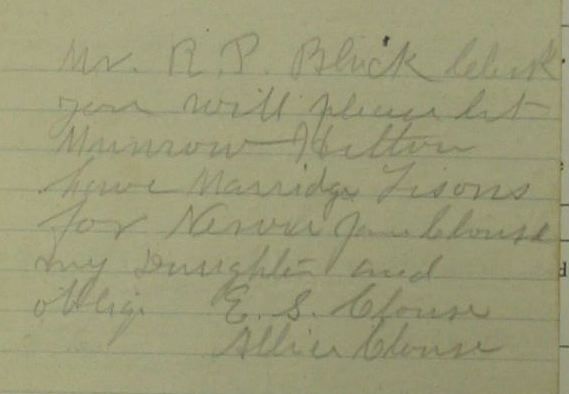 Mr. R. P. Black Clerk
you will please let
Munrow Hilton
have Marridge Lisons
for Nervie Jane Clouse
my Daughter and
oblige E. S. Clouse
Allie Clouse